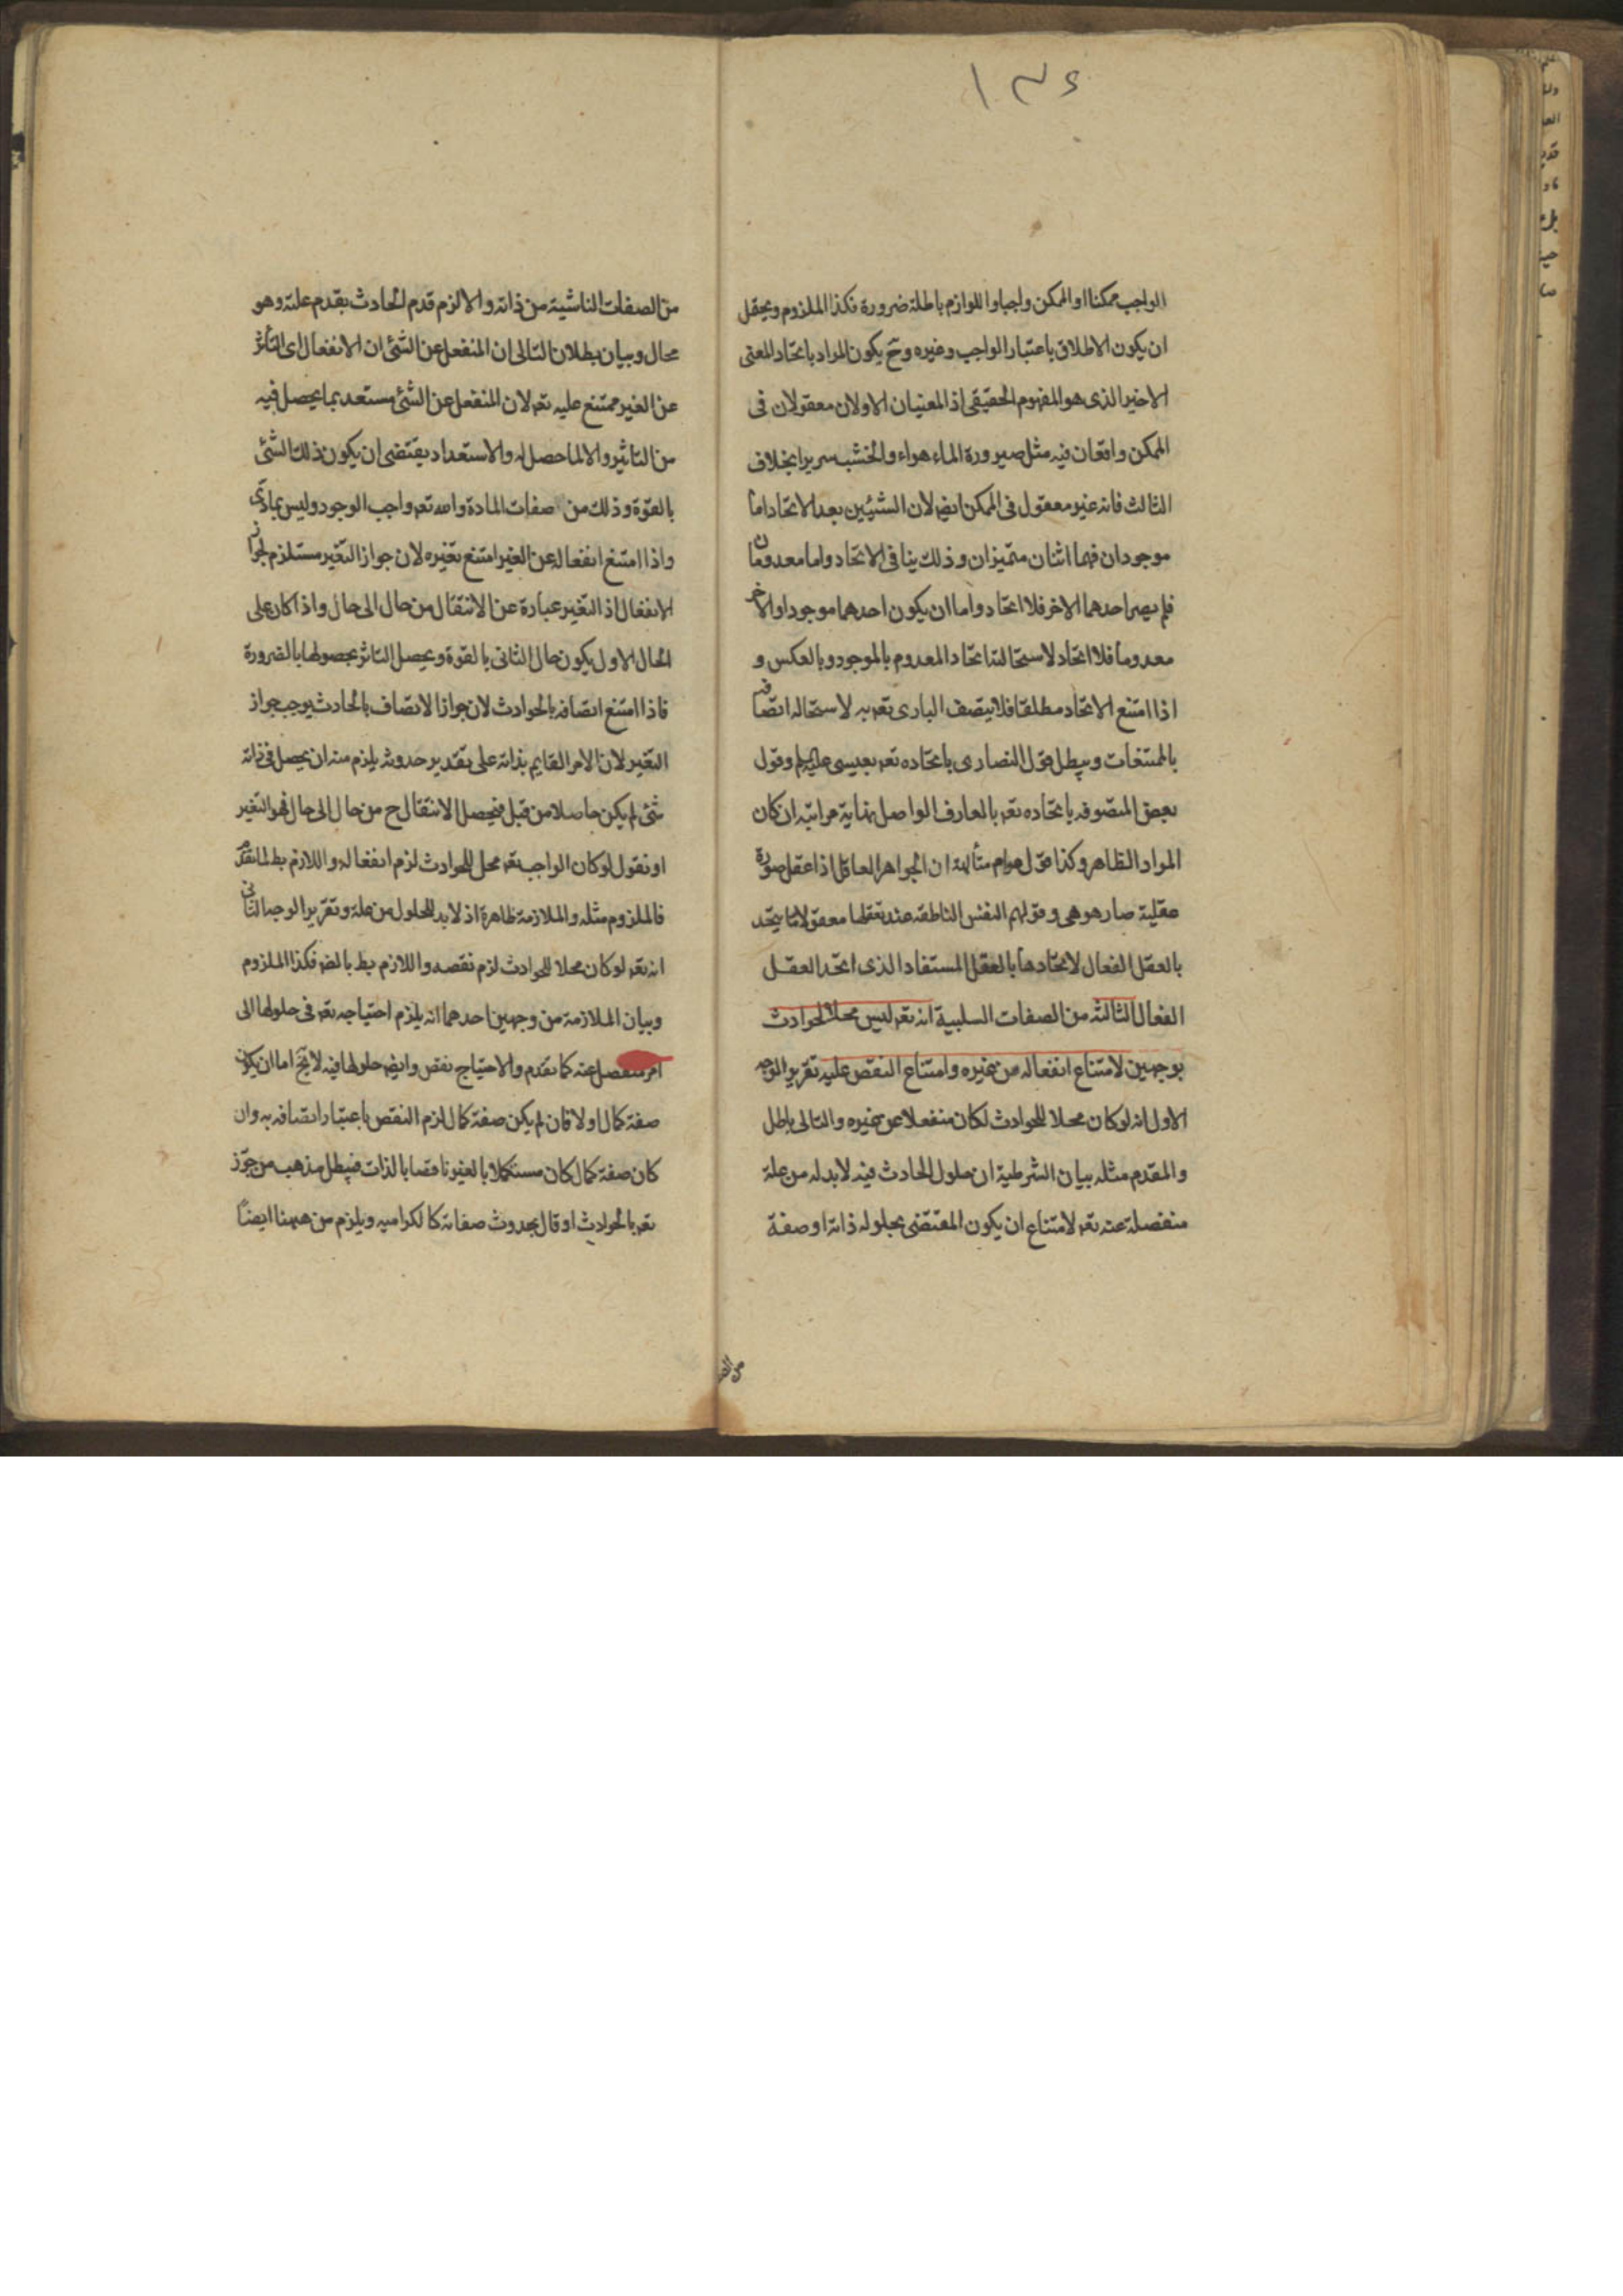 ١٣٤
الواجب ممكنا او الممكن واجبا واللوازم باطلة ضرورة فكذا الملزوم ويحتمل
ان يكون الاطلاق باعتبار الواجب وغيره وح يكون المراد باتحاد المعنى
الاخير الذى هو المفهوم الحقيقى اذ المعنيان الاولان معقولان فى
الممكن واقعان فيه مثل صيرورة الماء هواء والخشب سريرا بخلاف
الثالث فانه غير معقول فى الممكن ايضا لان الشيئين بعد الاتحاد اما
موجودان فهما اثنان متميزان وذلك ينافى الاتحاد واما معدومان
فلم يصر احدهما الاخر فلا اتحاد واما ان يكون احدهما موجودا والاخر
معدوما فلا اتحاد لاستحالة اتحاد المعدوم بالموجود وبالعكس و
اذا امتنع الاتحاد مطلقا فلا يتصف البارى تعه به لاستحالة اتصافه
بالممتنعات ويبطل قول النصارى باتحاده تعه بعيسى عليه السلم وقول
بعض المتصوفه باتحاده تعه بالعارف الواصل نهاية مراتبه ان كان
المراد الظاهر وكذا قول عوام متألهة ان الجواهر العاقل اذا عقل صورة
عقلية صار هو هى وقولهم النفس الناطقه عند تعقلها معقولا ما يتحد
بالعقل الفعال لاتحادها بالعقل المستفاد الذى اتحد العقل
الفعال الثالثه من الصفات السلبية انه تعه ليس محلا لحوادث
بوجهين لامتناع انفعاله من غيره وامتناع النقص عليه تقرير الوجه
الاول انه لو كان محلا للحوادث لكان منفعلا عن غيره والتالى باطل
والمقدم مثله بيان الشرطية ان حلول الحادث فيه لابد له من علة
منفصلة عنه تعه لامتناع ان يكون المقتضى بحلوله ذاته او صفة
من الصفات الناشية من ذاته والا لزم قدم الحادث بقدم علته وهو
محال وبيان بطلان التالى ان المنفعل عن الشئ ان الانفعال اى التأثر
عن الغير ممتنع عليه تعه لان المنفعل عن الشئ مستعد بما يحصل فيه
من التاثير والا لما حصل له والاستعداد يقتضى ان يكون ذلك الشئ
بالقوة وذلك من صفات المادة والله تعه واجب الوجود وليس بمادى
واذا امتنع انفعاله عن الغير امتنع تغيره لان جواز التغير مستلزم لجواز
الانفعال اذ التغير عبارة عن الانتقال من حال الى حال واذا كان على
الحال الاول يكون حال الثانى بالقوة ويحصل التاثر بحصولها بالضرورة
فاذا امتنع اتصافه بالحوادث لان جواز الاتصاف بالحادث يوجب جواز
التغير لان الامر القايم بذاته على تقدير حدوثه يلزم منه ان يحصل فى ذاته
شئ لم يكن حاصلا من قبل فيحصل الانتقال ح من حال الى حال فهو التغير
او نقول لو كان الواجب تعه محل للحوادث لزم انفعاله واللازم بط لما تقدم
فالملزوم مثله والملازمة ظاهرة اذ لابد للحلول من علة وتقرير الوجه الثانى
انه تعه لو كان محلا للحوادث لزم نقصه واللازم بط بالضر فكذا الملزوم
وبيان الملازمة من وجهين احدهما انه يلزم احتياجه تعه فى حلولها الى
امر منفصل عنه كما تقدم والاحتياج نقص وايضا حلولها فيه لا يخ اما ان يكون
صفة كمال اولا فان لم يكن صفة كمال لزم النقص باعتبار اتصافه به وان
كان صفة كمال كان مستكملا بالغير ناقصا بالذات فيبطل مذهب من جوز
تعه بالحوادث او قال بحدوث صفاته كالكراميه ويلزم من ههنا ايضا
من الصفا